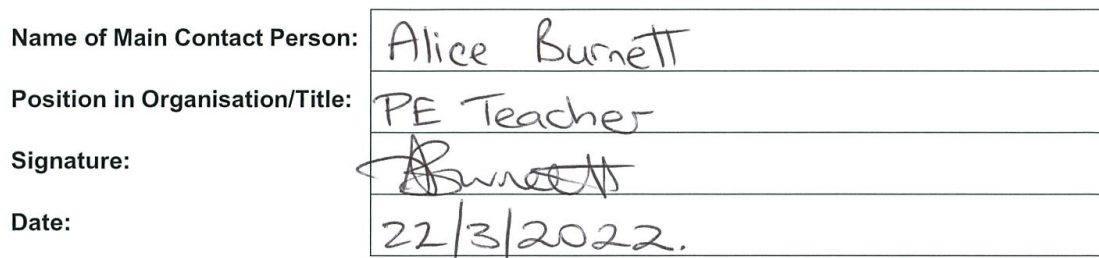 Name of Main Contact Person: Alice Burnett
Position in Organisation/Title: PE Teacher
Signature: ABurnett
Date: 22/3/2022.